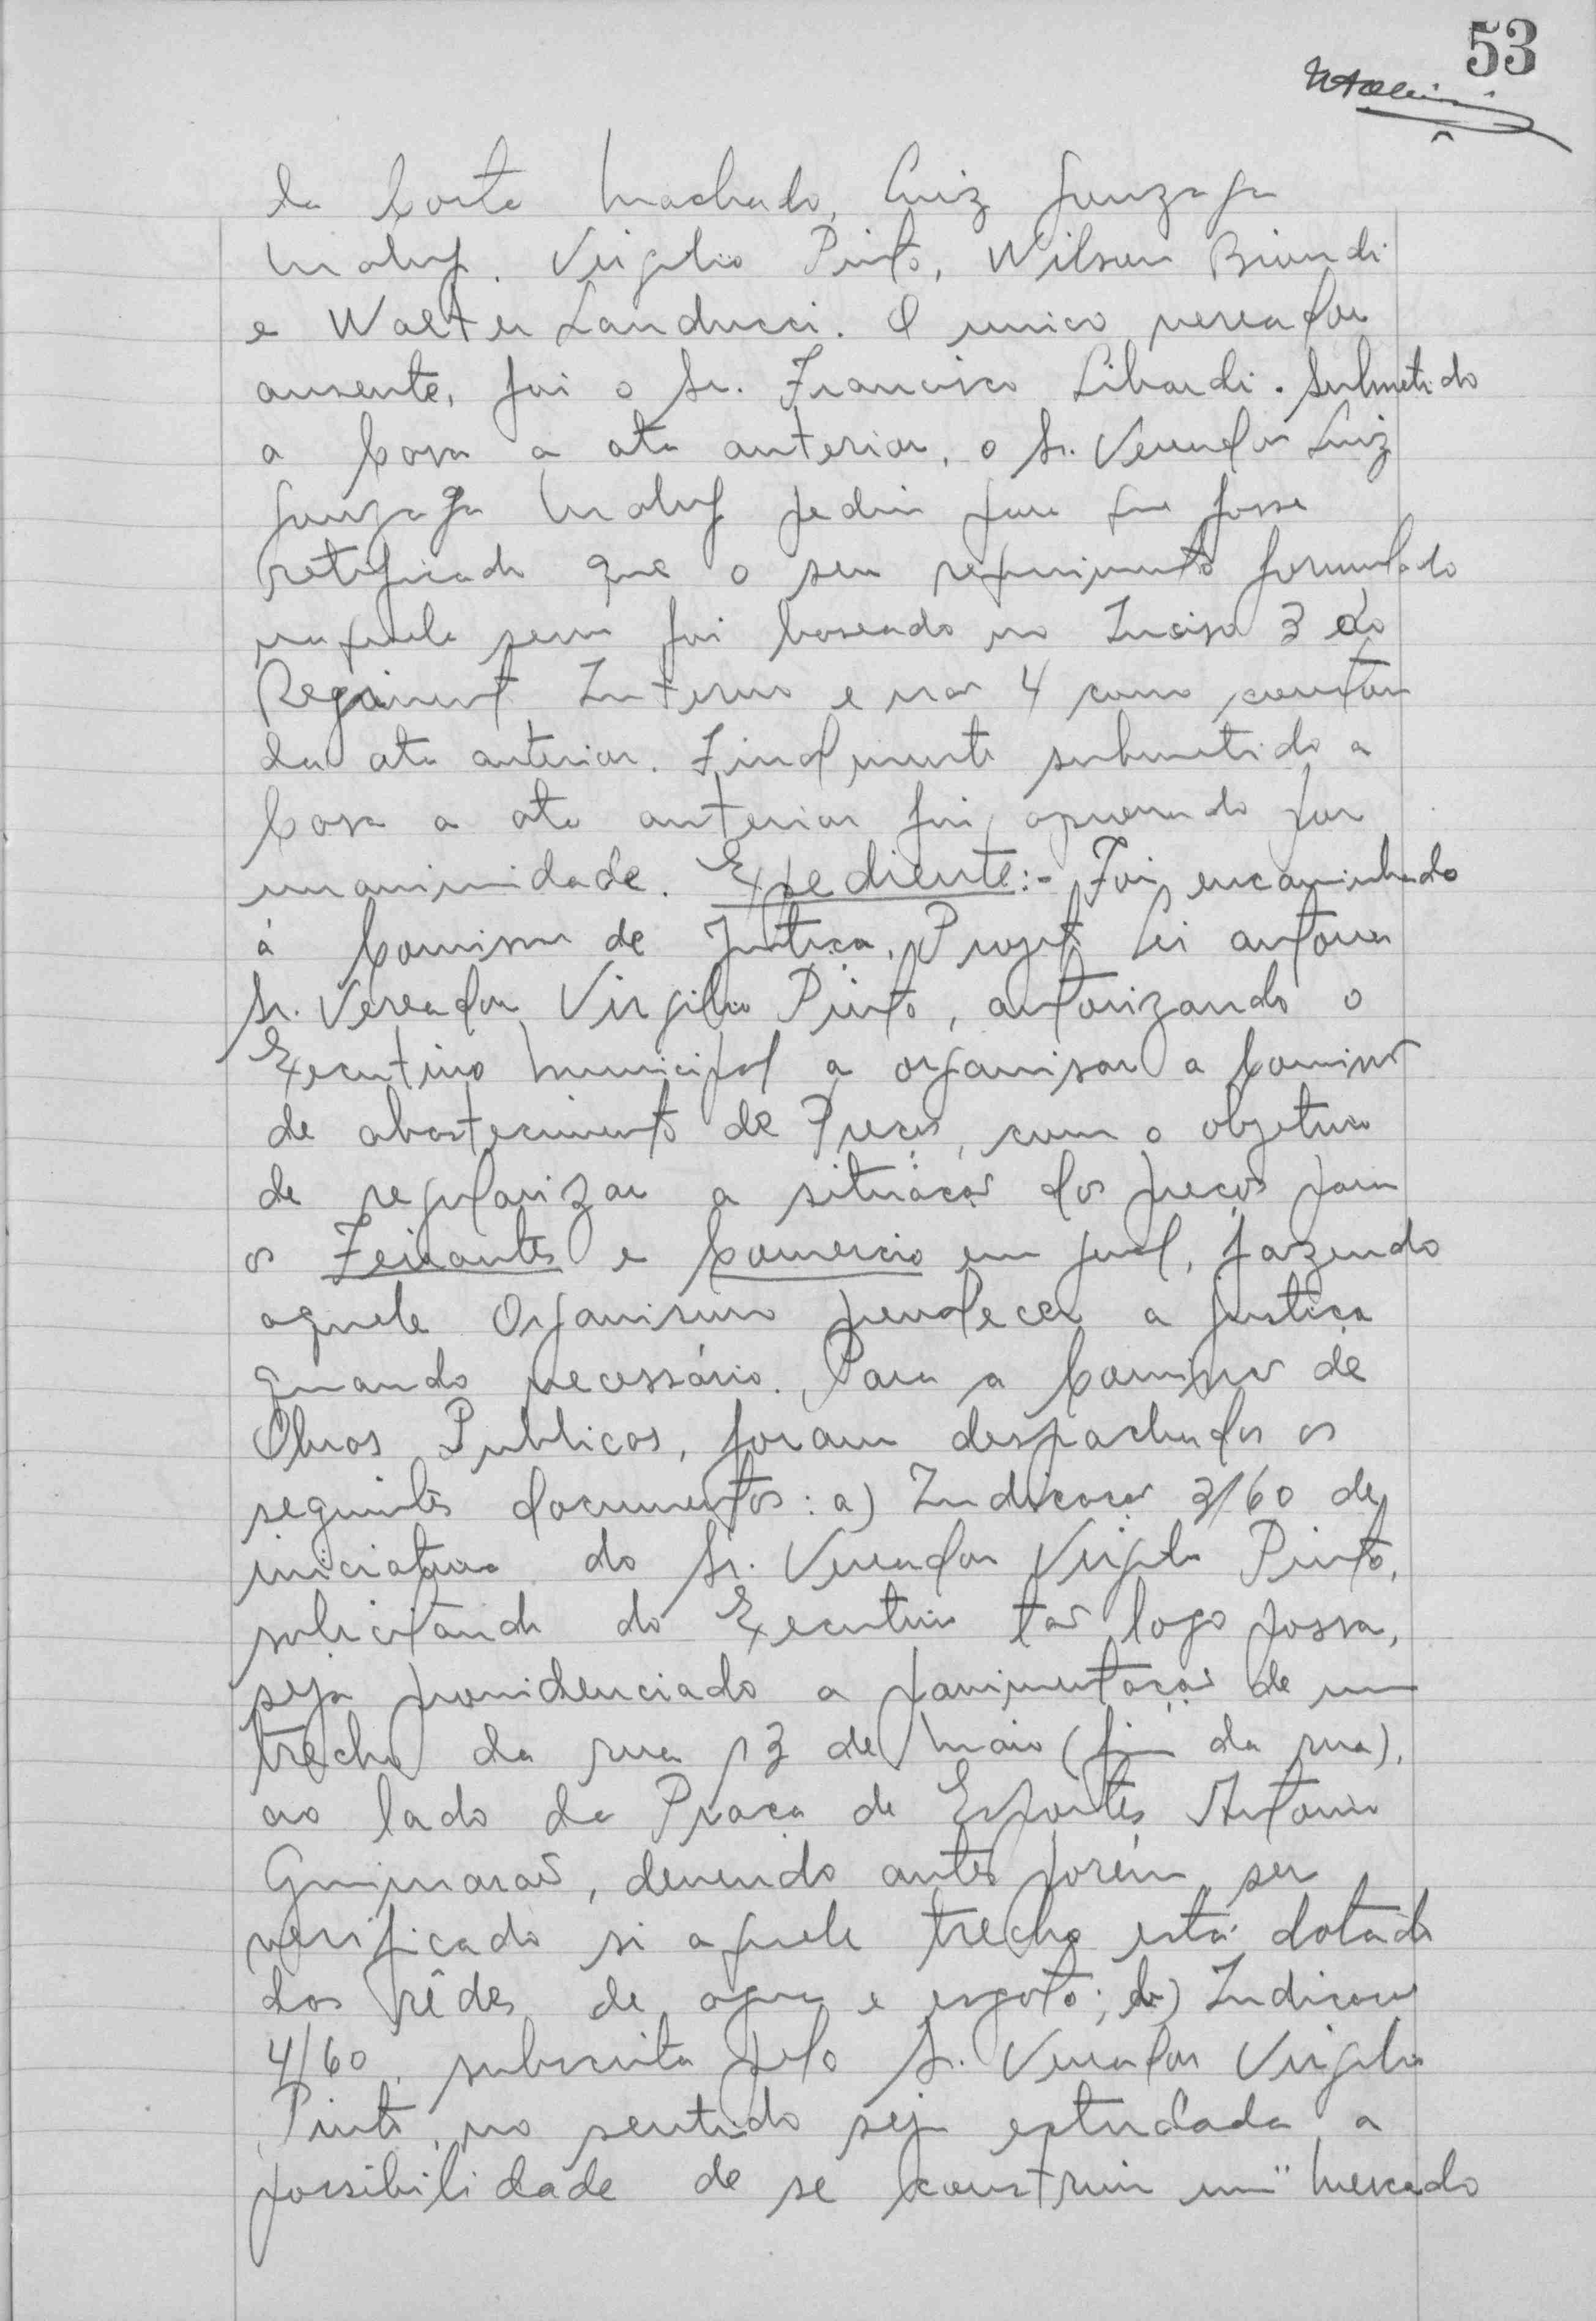 53
da Costa Machado, Luiz Gonzaga
Maluf. Virgilio Pinto, Wilson Biondi
e Walter Landucci. O unico vereador
ausente, foi o Sr. Francisco Libardi. Submetido
a Casa a ata anterior, o Sr. Vereador Luiz
Gonzaga Maluf pediu para que fosse
retificado que o seu requerimento formulado
naquela sessão foi baseado no Inciso 3 do
Regiment Interno e não 4 como constou
da ata anterior. Finalmente submetido a
Casa a ata anterior foi aprovado por
unanimidade. Expediente:- Foi encaminhado
á Comissão de Justiça, Projeto Lei autoria
Sr. Vereador Virgilio Pinto, autorizando o
Executivo Municipal a organisar a Comissão
de abastecimento de Preços, com o objetivo
de regularizar a situação dos preços para
os Feirantes e Comercio em geral, fazendo
aquele Organismo prevalecer a justiça
quando necessário. Para a Comissão de
Obras Publicas, foram despachados os
seguintes documentos: a) Indicação 3/60 de
iniciativa do Sr. Vereador Virgilio Pinto,
solicitando do Executivo tão logo possa,
seja providenciado a pavimentação de um
trecho da rua 13 de Maio (fim da rua),
ao lado da Praça de Esportes Antonio
Guimarães, devendo antes porém ser
verificado si aquele trecho está dotado
das rêdes de agua e esgoto; b) Indicação
4/60, subscrita pelo Sr. Vereador Virgilio
Pinto, no sentido seja estudada a
possibilidade de se construir um "Mercado